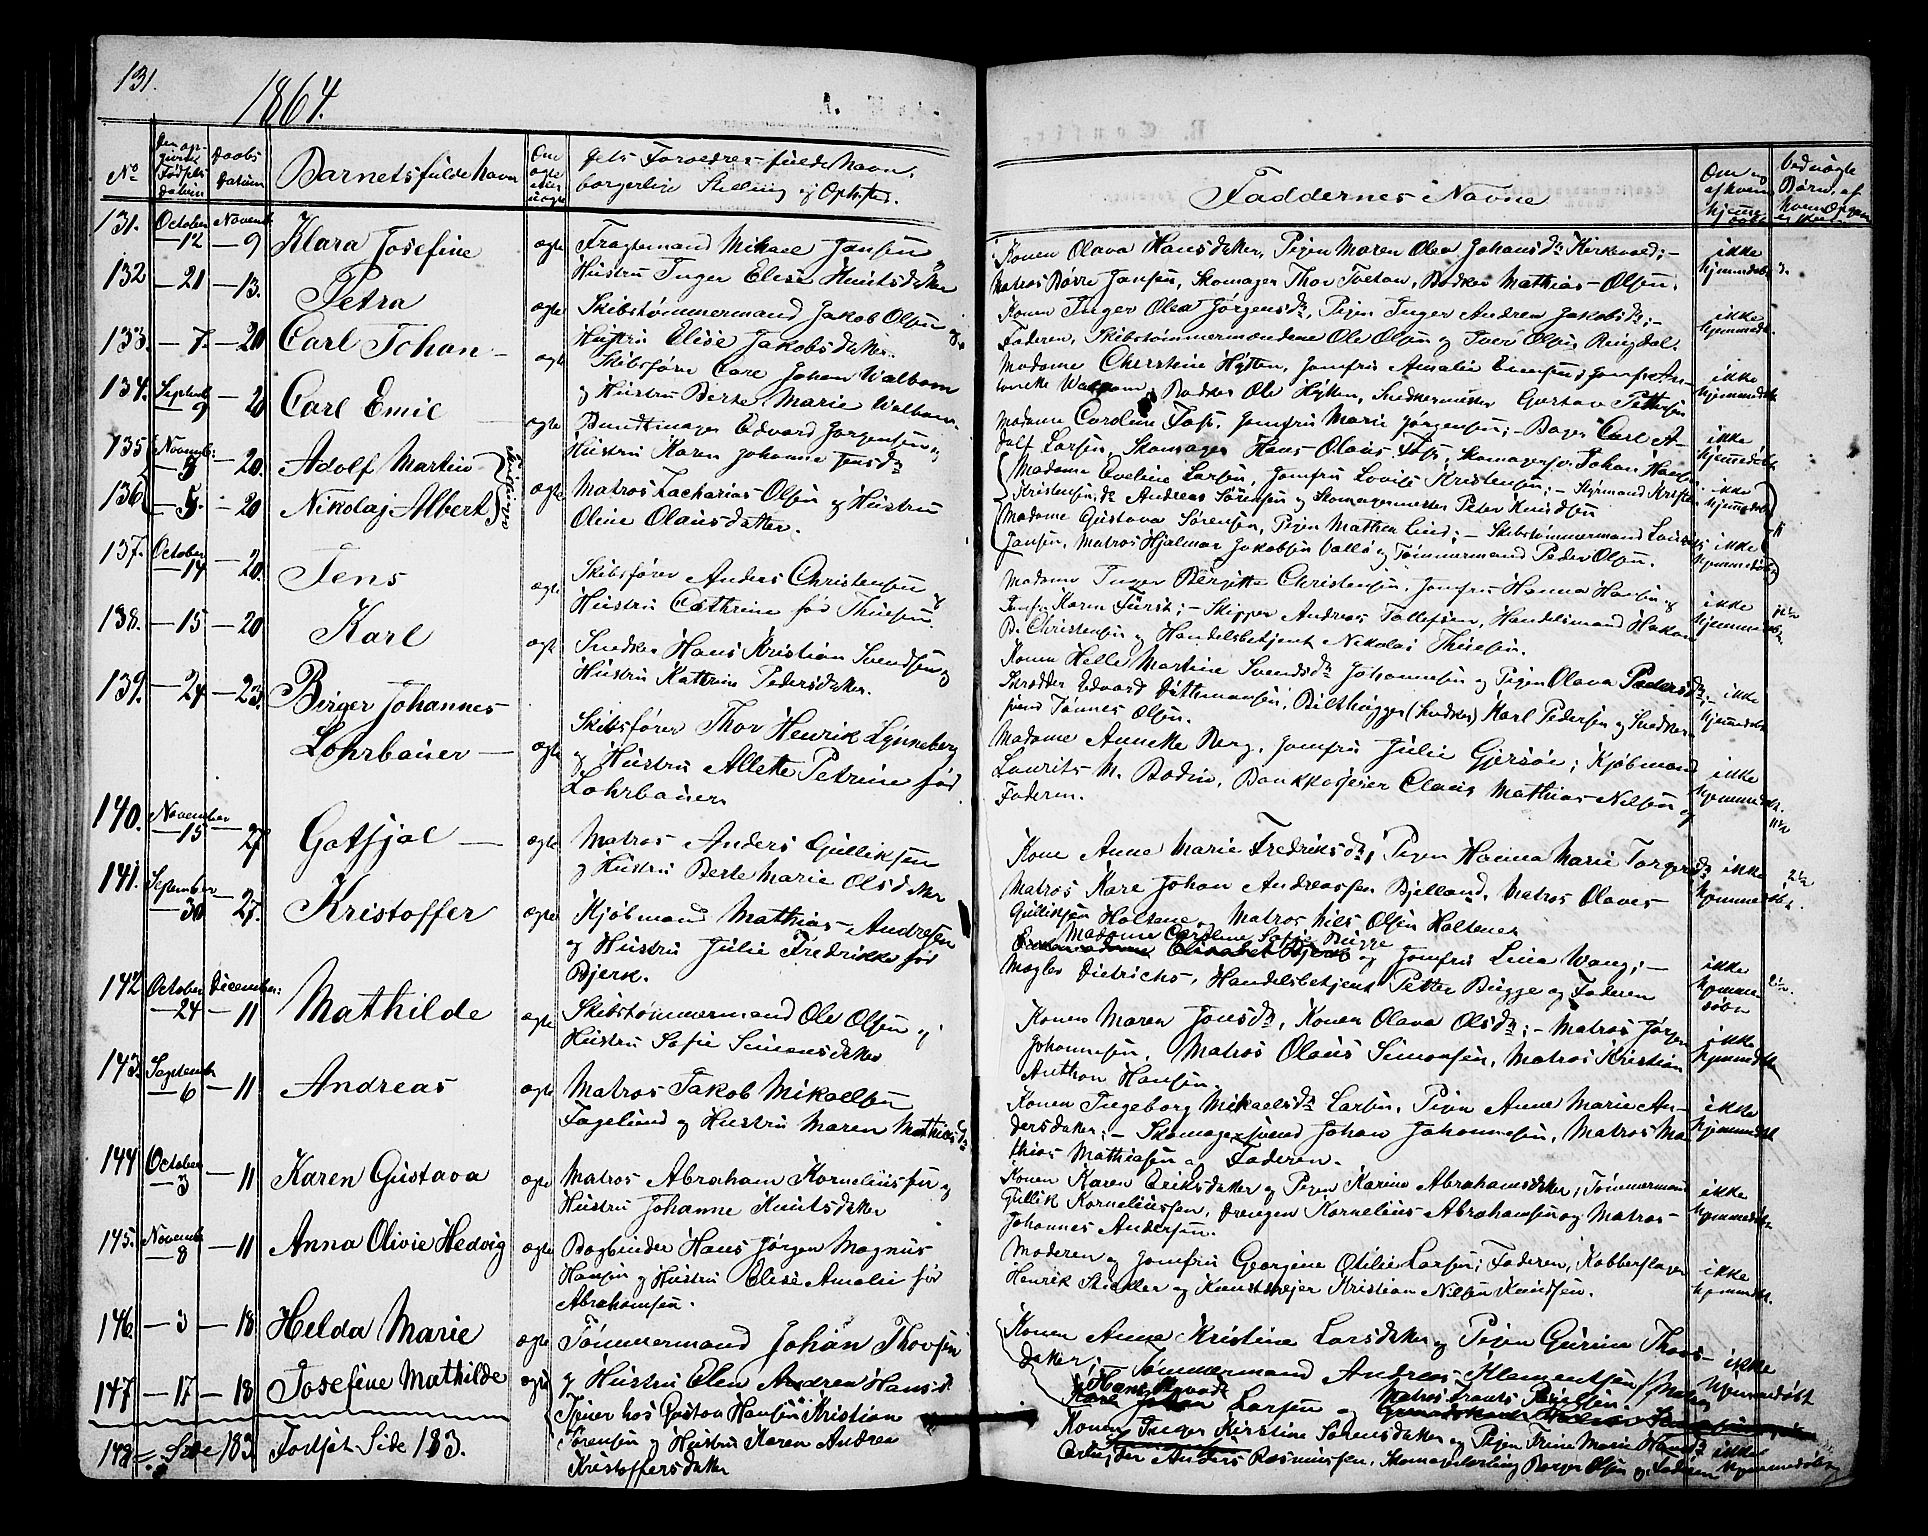 131.
1864.
No
Den op-
givne
Fødsels-
datum
Daabs
Datum
Barnets fulde Navn
Om
ægte
eller
uægte
Dets Forældres fulde Navn,
borgerlige Stilling og Opholdsted.
Faddernes Navne
131. October 12 Novemb. 9 Klara Josefine ægte Fragtemand Mikael Jansen
Hustru Inger Elise Knutsdatter
132 21 13. Petra ægte Skibstømmermand Jakob Olsen og
Hustru Elise Jakobsdatter.
133. 7. 20 Carl Johan ægte Skibsfører Carl Johan Walbom
og Hustru Berte Marie Walbom
134. Septemb. 9 20 Carl Emil ægte Bundtmager Edvard Jørgensen og
Hustru Karen Johanne Jensdr
135 Novemb: 5 20. Adolf Martin
136 5. 20 Nikolaj Albert ægte Matros Zacharias Olsen og Hustru
Oline Olausdatter.
137. October 14 20. Jens ægte Skibsfører Anders Christensen &
Hustru Cathrine fød Thiesen.
138. 15. 20 Karl ægte Snedker Hans Kristian Svendsen og
Hustru Kathrine Pedersdatter.
139. 24 23. Birger Johannes
Lohrbauer ægte Skibsfører Thor Henrik Lynneberg
& Hustru Allette Petrine fød
Lohrbauer
140. November 15 27 Gotfjal ægte Matros Anders Gulliksen
og Hustru Berte Marie Olsdatter
141. September 30 27. Kristoffer ægte Kjøbmand Mathias Andresen
og Hustru Julie Fredrikke fød
Bjerk.
142 October 24 December: 11 Mathilde ægte Skibstømmermand Ole Olsen og
Hustru Sofie Simensdatter
143. Septemb 6 11 Andreas ægte Matros Jakob Mikaelsen
Fagelund og Hustru Maren Mathiasdr
144 October 3 11 Karen Gustava ægte Matros Abraham Korneliussen og
Hustru Johanne Knutsdatter
145. Novemb 8 11 Anna Olivie Hedvig ægte Bogbinder Hans Jørgen Magnus
Hansen og Hustru Elise Amalie fød
Abrahamsen.
146 3 18 Helda Marie ægte Tømmermand Johan Thorsen
& Hustru Elen Andrea Hansd.
147 17 18 Josefine Mathilde ægte Tjener hos Gaston Hansen Kristian
Sørensen og Hustru Karen Andrea
Kristoffersdatter
148 Side 183. Fortsat Side 183.
Konen Olava Hansdatter, Pigen Maren Olea Johansdr Kirkevold;
Matros Børre Jansen, Skomager Thor Tveton, Bødker Mathias Olsen. ikke hjemmedøbt
Konen Inger Olea Jørgensdr, Pigen Inger Andrea Jakobsdr;
Faderen, Skibstømmermændene Ole Olsen og Iver Olsen Ringdal. ikke hjemmedøbt
Madame Christine Hytten, Jomfru Amalie Einersen, Jomfru An-
Walbom; Bødker Ole Hytten, Snedkermester Gustav Pettersen ikke hjemmedøbt
Madame Caroline Foss, Jomfru Marie Jørgensen; Bager Carl A-
dolf Larsen, Skomager Hans Olaus Foss, Skomagersv. Johan Hansen ikke hjemmedøbt
Madame Eveline Larsen, Jomfru Lovise Kristensen; Styrmand Kristen
Kristensen, Andreas Sørensen og Skomagermester Peter Knudsen ikke hjemmedøbt
Madame Gustava Sørensen, Pigen Mathea Lind; Skibstømmermand Laurits
Jansen, Matros Hjalmar Jakobsen Vallø og Tømmermand Peder Olsen. ikke hjemmedøbt
Madame Inger Birgitte Christensen, Jomfru Hanna Hansen &
Jomfru Karen Fürst; Skipper Andreas Tollefsen, Handelsmand Hakon
B. Christensen og Handelsbetjent Nikolai Thiesen. ikke hjemmedøbt
Konen Helle Martine Svendsdr Johannesen og Pigen Olava Pedersdr;
Skrædder Edvard Dittmansen, Bilthugger (Snedker) Karl Pedersen og Snedker-
svend Tønnes Olsen. ikke hjemmedøbt
Madame Anneke Berg, Jomfru Julie Gjersøe; Kjøbmand
Laurits M. Bodin, Bankkasserer Claus Mathias Nilsen og
Faderen. ikke hjemmedøbt
Kone Anne Marie Fredriksdr, Pigen Hanna Marie Torgersdr
Matros Kare Johan Andreassen Bjelland, Matros Olaves
Gulliksen Holtene og Matros Nils Olsen Holtenes ikke hjemmedøbt
Madame Caroline Sofie Bugge
og Jomfru Lina Wang;
Mægler Dietrichs, Handelsbetjent Petter Bugge og Faderen ikke hjemmedøbt
Konen Maren Jonsdr, Konen Olava Olsdr; Matros Jørgen
Johannesen, Matros Olaus Simonsen, Matros Kristian
Anthon Hansen. ikke hjemmedøbt
Konen Ingeborg Mikaelsdr Larsen, Pigen Anne Marie An-
dersdatter; Skomagersvend Johan Johannesen, Matros Ma-
thias Mathiasen og Faderen. ikke hjemmedøbt
Konen Karen Eriksdatter og Pigen Karine Abrahamsdatter; Tømmermand
Gullik Korneliussen, Drengen Kornelius Abrahamsen og Matros
Johannes Andersen. ikke hjemmedøbt
Moderen og Jomfru Georgine Otilie Larsen; Faderen, Kobberslager
Henrik Stickler og Kunstdrejer Kristian Nilsen Knudsen. ikke hjemmedøbt.
Konen Anne Kristine Larsdatter og Pigen Gurine Thors-
datter; Tømmermand Andreas Klementsen, Matros
Larsen og Matros Frants ikke hjemmedøbt
Konen Inger Kirstine Sørensdatter og Pigen Trine Marie
Anders Rasmussen, Skomagerlærling Børger Olsen og Faderen ikke hjemmedøbt